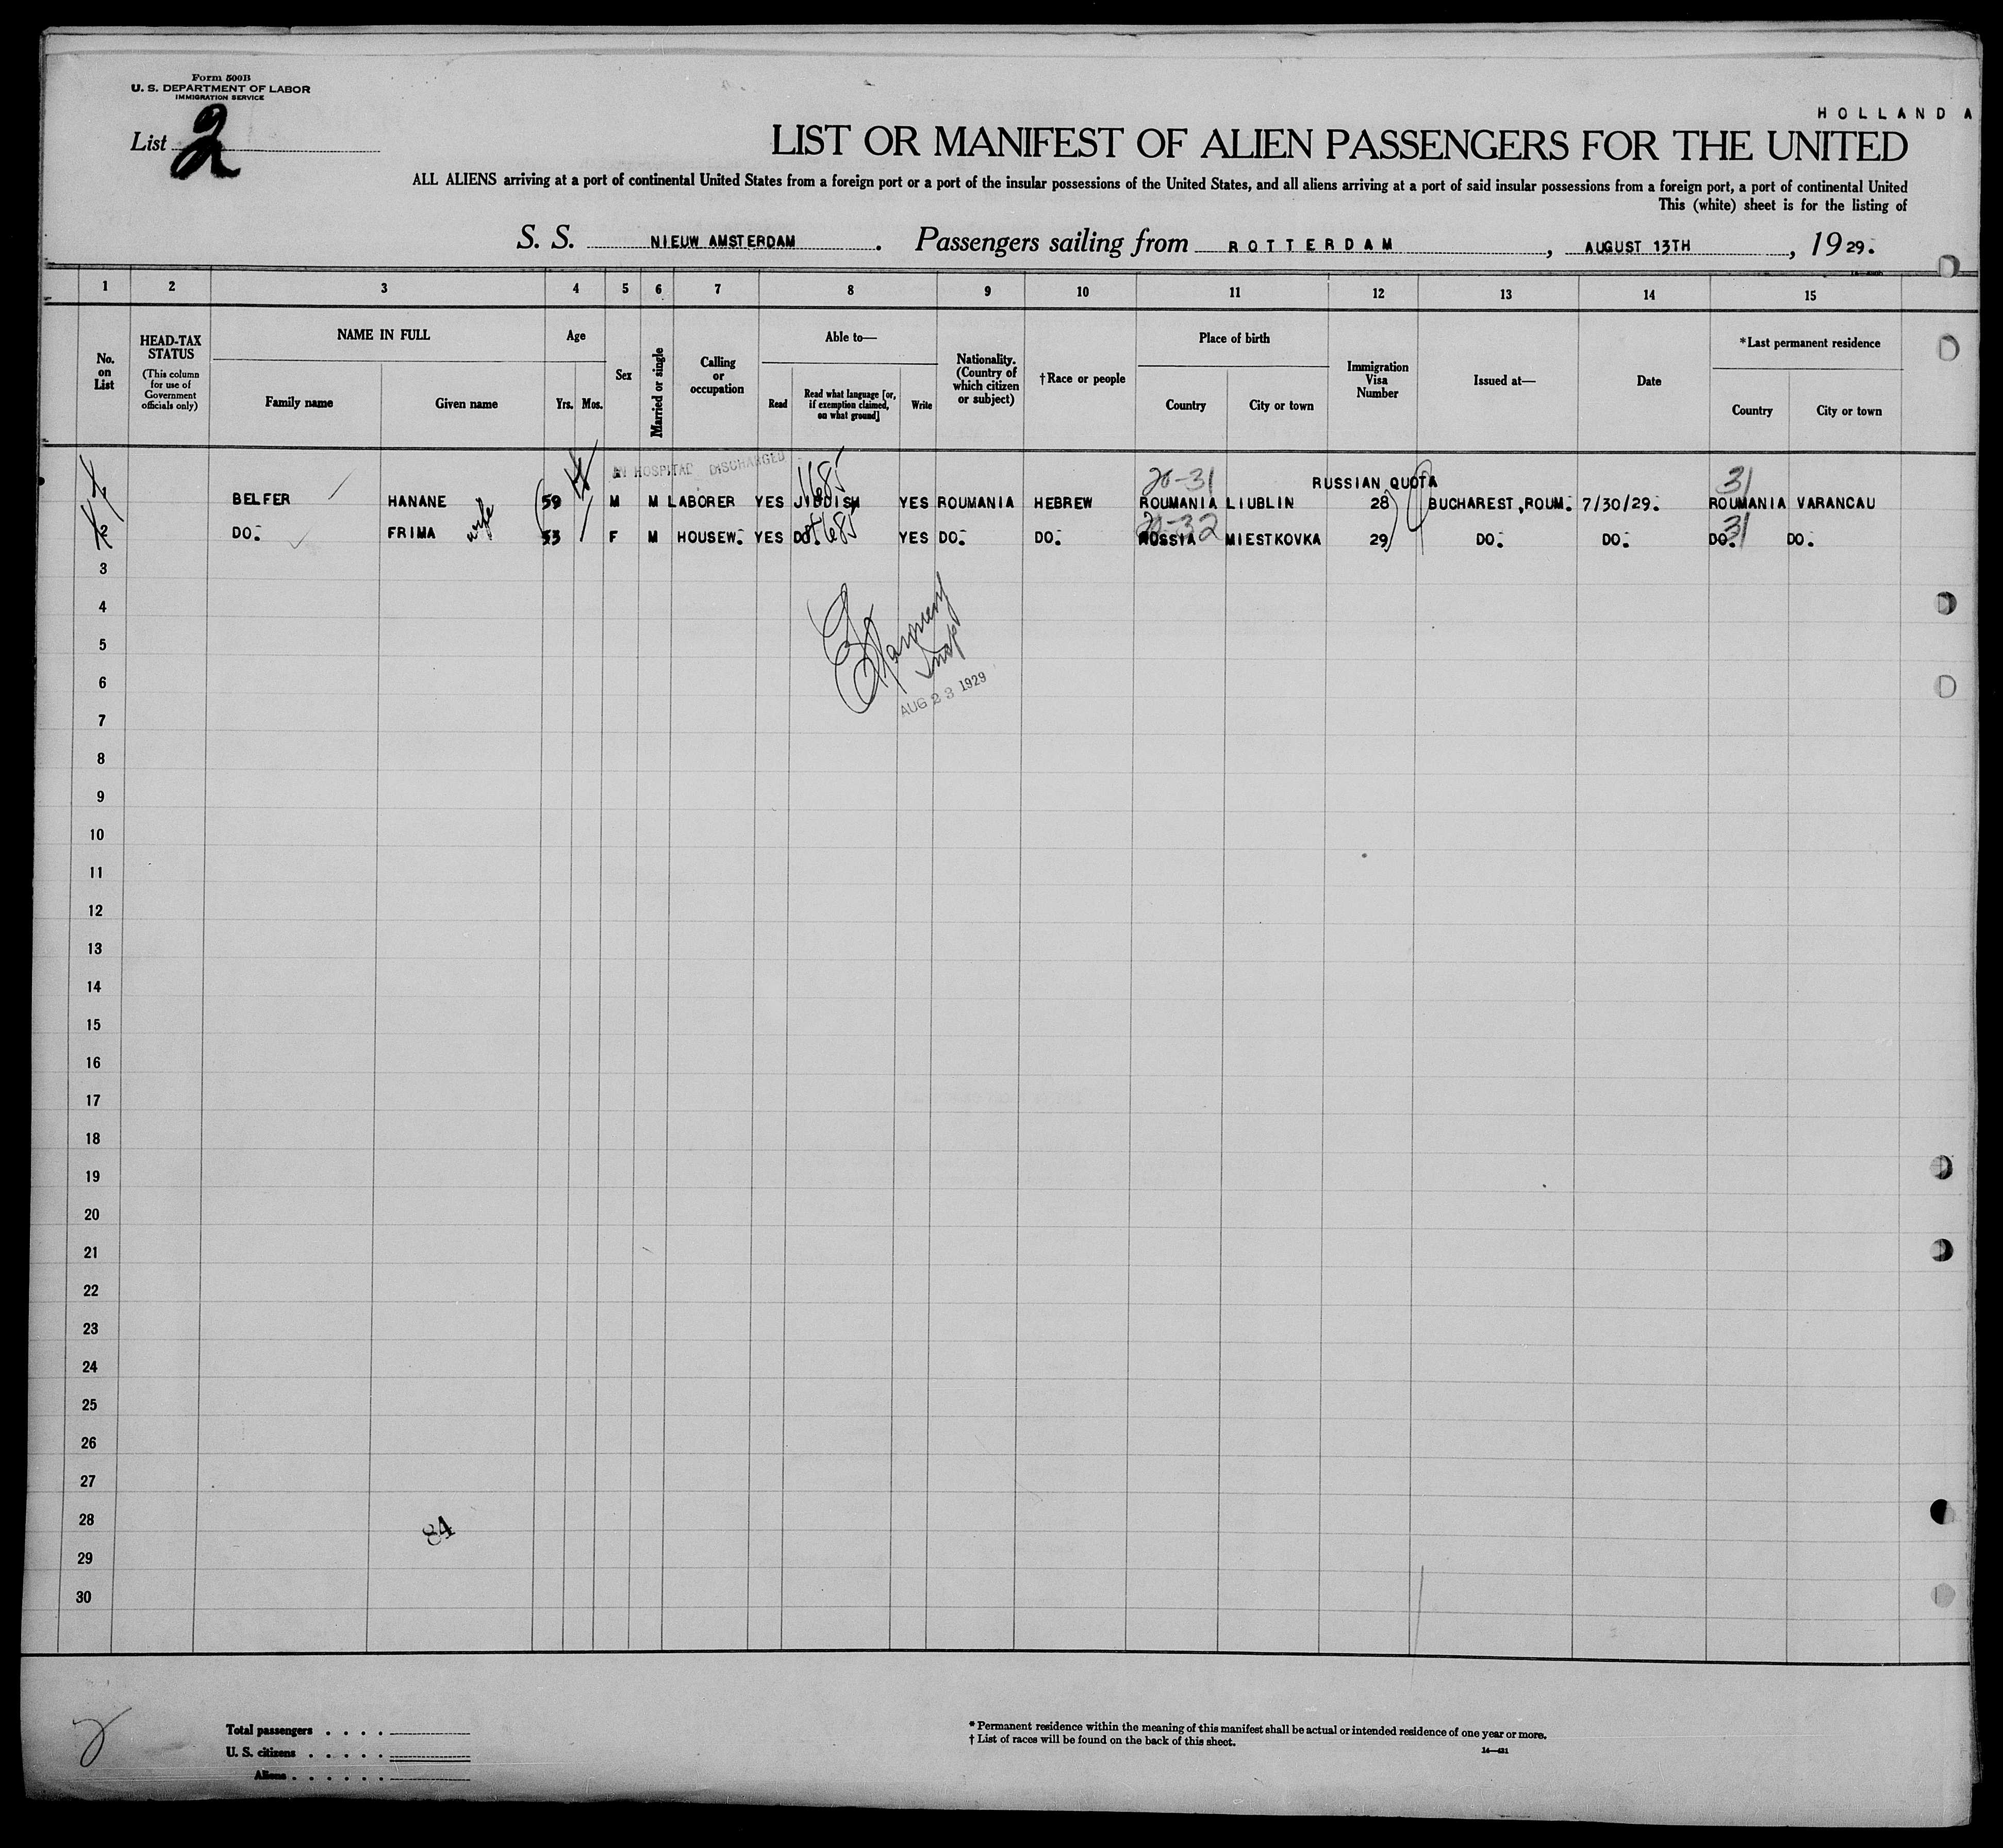 Form 500B
U. S. DEPARTMENT OF LABOR
IMMIGRATION SERVICE
List 2
HOLLAND A
LIST OR MANIFEST OF ALIEN PASSENGERS FOR THE UNITED
ALL ALIENS arriving at a port of continental United States from a foreign port or a port of the insular possessions of the United States, and all aliens arriving at a port of said insular possessions from a foreign port, a port of continental United
This (white) sheet is for the listing of
S. S. NIEUW AMSTERDAM. Passengers sailing from ROTTERDAM, AUGUST 13TH, 1929.
1 2 3 4 5 6 7 8 9 10 11 12 13 14 15
No. on List
HEAD-TAX STATUS (This column for use of Government officials only)
NAME IN FULL
Family name Given name
Age
Yrs. Mos.
Sex
Married or single
Calling or occupation
Able to—
Read Read what language [or, if exemption claimed, on what ground] Write
Nationality. (Country of which citizen or subject)
†Race or people
Place of birth
Country City or town
Immigration Visa Number
Issued at—
Date
*Last permanent residence
Country City or town
IN HOSPITAL DISCHARGED
1685 20-31 RUSSIAN QUOTA 31
1 BELFER HANANE 59 M M LABORER YES JIDDISH YES ROUMANIA HEBREW ROUMANIA LIUBLIN 28 BUCHAREST, ROUM. 7/30/29. ROUMANIA VARANCAU
wife 1685 20-32 31
2 DO. FRIMA 53 F M HOUSEW. YES DO. YES DO. DO. RUSSIA MIESTKOVKA 29 DO. DO. DO. DO.
3
4
5
Insp
6
AUG 23 1929
7
8
9
10
11
12
13
14
15
16
17
18
19
20
21
22
23
24
25
26
27
28
84
29
30
Total passengers . . . .
U. S. citizens . . . . .
Aliens . . . . . .
* Permanent residence within the meaning of this manifest shall be actual or intended residence of one year or more.
† List of races will be found on the back of this sheet.